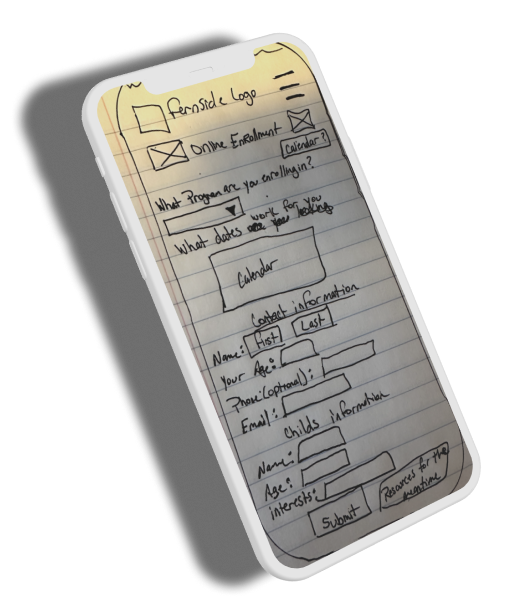 Fernside Logo
Online Enrollment
Calendar?
What Program are you enrolling in?
What dates work for you
Calendar
Contact information
Name: First Last
Your Age:
Phone (optional):
Email:
Childs information
Name:
Age:
interests:
Submit
Resources for the
meantime